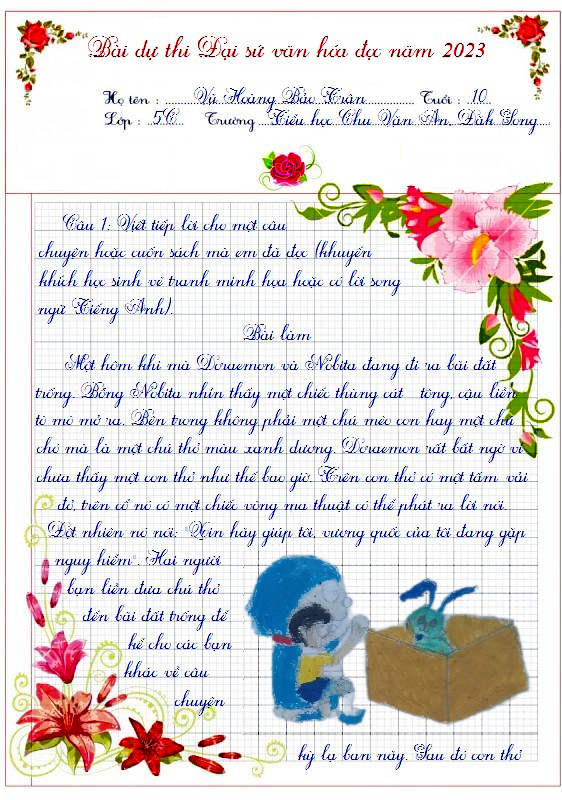 Bài dự thi Đại sứ văn hóa đọc năm 2023
Họ tên : Vũ Hoàng Bảo Trân Tuổi : 10
Lớp : 5C Trường Tiểu học Chu Văn An, Đăk Song
Câu 1: Viết tiếp lời cho một câu
chuyện hoặc cuốn sách mà em đã đọc (khuyến
khích học sinh vẽ tranh minh họa hoặc có lời song
ngữ Tiếng Anh).
Bài làm
Một hôm khi mà Doraemon và Nobita đang đi ra bãi đất
trống. Bỗng Nobita nhìn thấy một chiếc thùng cát tông, cậu liền
tò mò mở ra. Bên trong không phải một chú mèo con hay một chú
chó mà là một chú thỏ màu xanh dương. Doraemon rất bất ngờ vì
chưa thấy một con thỏ như thế bao giờ. Trên con thỏ có một tấm vải
đỏ, trên cổ nó có một chiếc vòng ma thuật có thể phát ra lời nói.
Đột nhiên nó nói: "Xin hãy giúp tôi, vương quốc của tôi đang gặp
nguy hiểm". Hai người
bạn liền đưa chú thỏ
đến bãi đất trống để
kể cho các bạn
khác về câu
chuyện
kỳ lạ ban nãy. Sau đó con thỏ